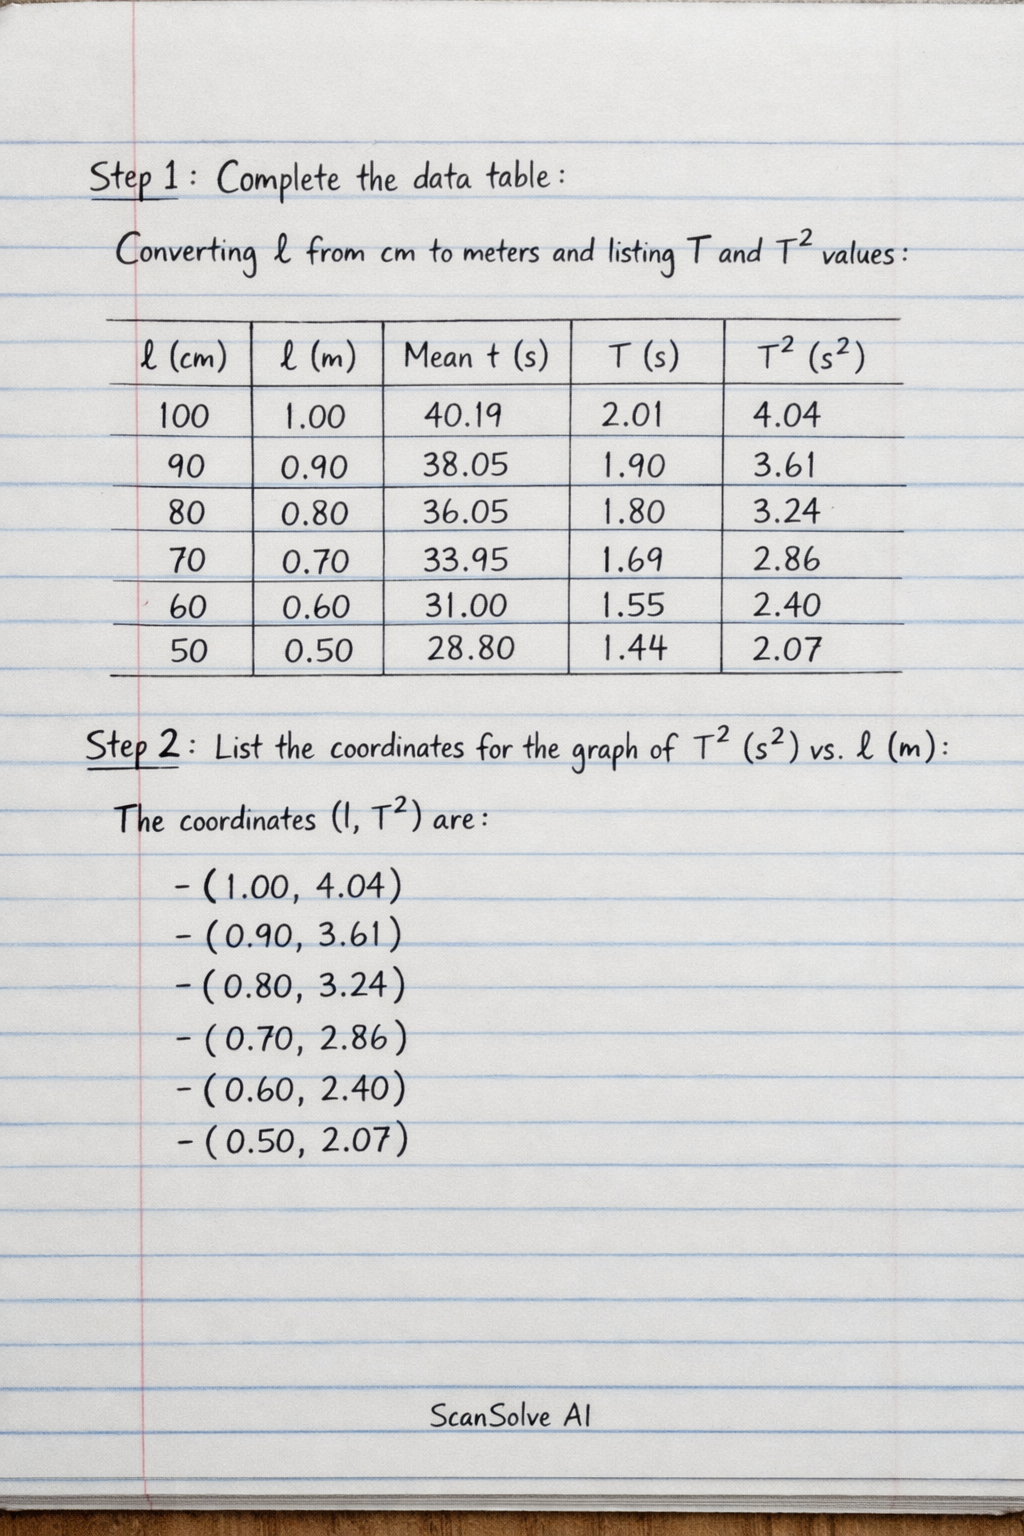 Step 1: Complete the data table:
Converting ℓ from cm to meters and listing T and T² values:
ℓ (cm) ℓ (m) Mean t (s) T (s) T² (s²)
100 1.00 40.19 2.01 4.04
90 0.90 38.05 1.90 3.61
80 0.80 36.05 1.80 3.24
70 0.70 33.95 1.69 2.86
60 0.60 31.00 1.55 2.40
50 0.50 28.80 1.44 2.07
Step 2: List the coordinates for the graph of T² (s²) vs. ℓ (m):
The coordinates (l, T²) are:
- (1.00, 4.04)
- (0.90, 3.61)
- (0.80, 3.24)
- (0.70, 2.86)
- (0.60, 2.40)
- (0.50, 2.07)
ScanSolve AI